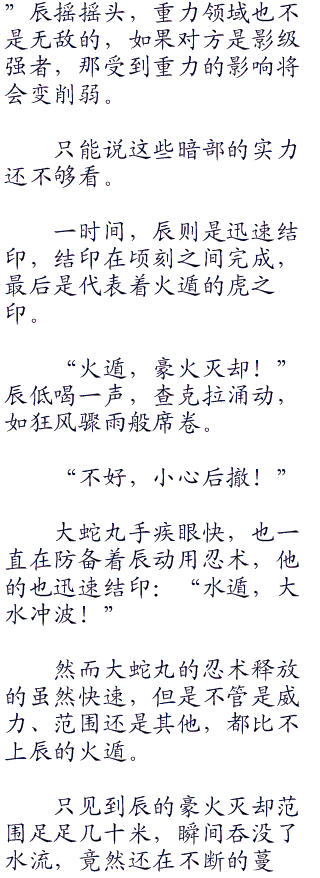 ”辰摇摇头，重力领域也不
是无敌的，如果对方是影级
强者，那受到重力的影响将
会变削弱。
只能说这些暗部的实力
还不够看。
一时间，辰则是迅速结
印，结印在顷刻之间完成，
最后是代表着火遁的虎之
印。
“火遁，豪火灭却！”
辰低喝一声，查克拉涌动，
如狂风骤雨般席卷。
“不好，小心后撤！”
大蛇丸手疾眼快，也一
直在防备着辰动用忍术，他
的也迅速结印：“水遁，大
水冲波！”
然而大蛇丸的忍术释放
的虽然快速，但是不管是威
力、范围还是其他，都比不
上辰的火遁。
只见到辰的豪火灭却范
围足足几十米，瞬间吞没了
水流，竟然还在不断的蔓